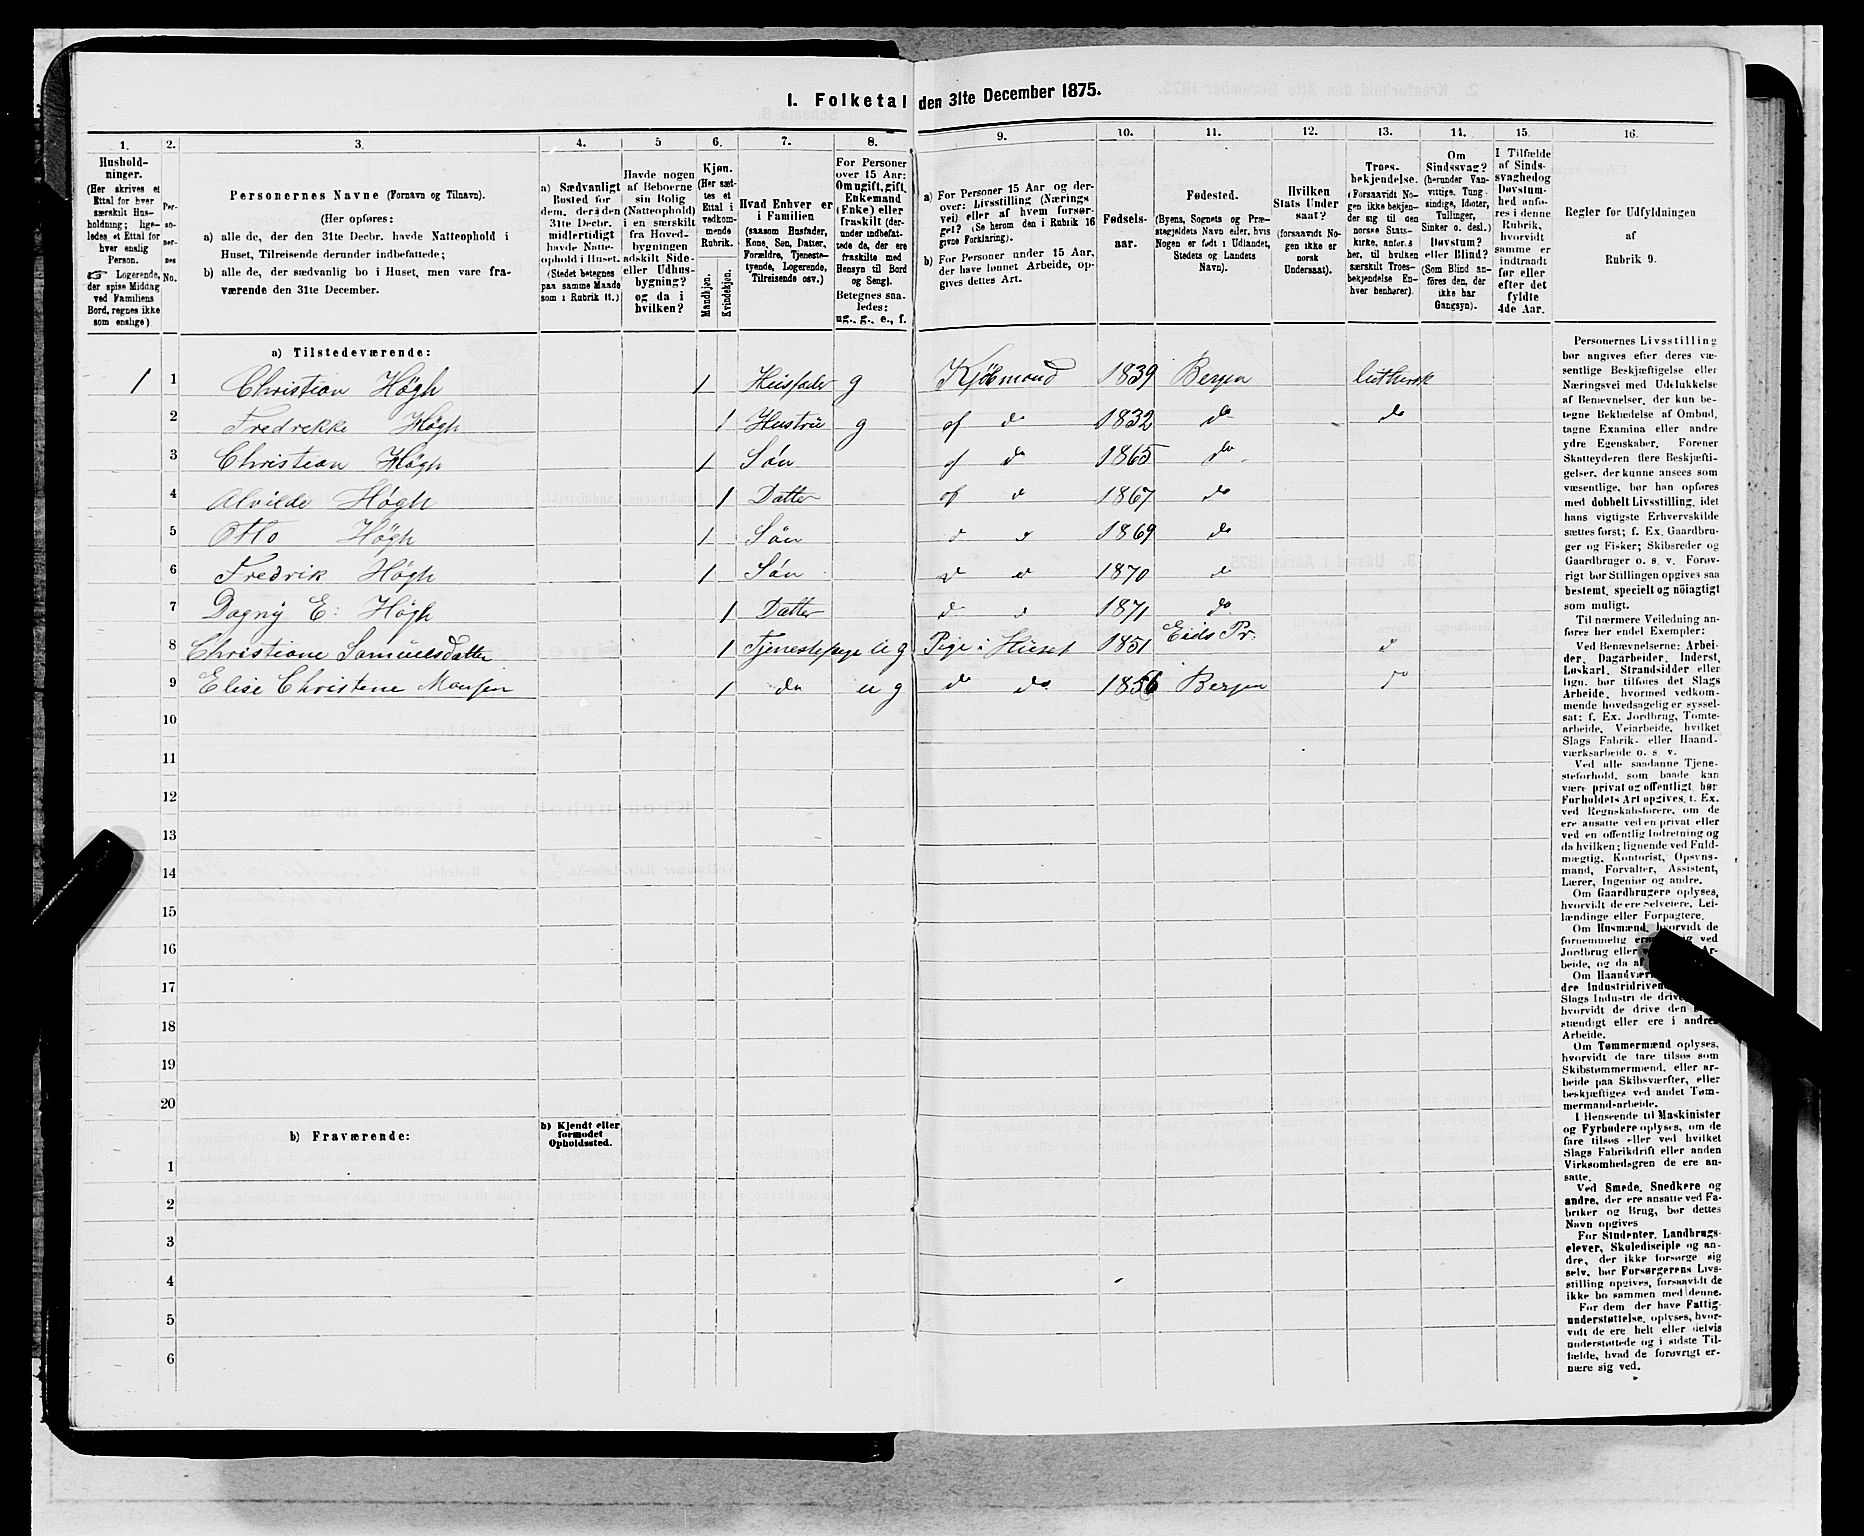 I. Folketal den 31te December 1875.
1. 2. 3. 4. 5 6. 7. 8. 9. 10. 11. 12. 13. 14. 15. 16.
Husholdninger.
(Her skrives et
Ettal for hver
særskilt Husholdning;
ligeledes et Ettal for
hver enslig
Person.
☞ Logerende,
der spise Middag
ved Familiens
Bord, regnes ikke
som enslige)
Personernes No.
Personernes Navne (Fornavn og Tilnavn).
(Her opføres:
a) alle de, der den 31te Decbr. havde Natteophold i
Huset, Tilreisende derunder indbefattede;
b) alle de, der sædvanlig bo i Huset, men vare fraværende
den 31te December.
a) Sædvanligt
Bosted for
dem, der den
31te Decbr.
midlertidigt
havde Natteophold
i Huset.
(Stedet betegnes
paa samme Maade
som i Rubrik 11.)
Havde nogen
af Beboerne
sin Bolig
(Natteophold)
i en særskilt
fra Hovedbygningen
adskilt Side-
eller Udhusbygning?
og da i
hvilken?
Kjøn.
(Her sættes
et
Ettal i
vedkommende
Rubrik.
Mandkjøn.
Kvindekjøn.
Hvad Enhver er
i Familien
(saasom Husfader,
Kone, Søn, Datter,
Forældre, Tjenestetyende,
Logerende,
Tilreisende osv.)
For Personer
over 15 Aar:
Om ugift, gift,
Enkemand
(Enke) eller
fraskilt (derunder
indbefattede
de, der ere
fraskilte med
Hensyn til Bord
og Seng).
Betegnes saaledes:
ug., g., e., f.
a) For Personer 15 Aar og derover:
Livsstilling (Næringsvei)
eller af hvem forsørget?
(Se herom den i Rubrik 16
givne Forklaring).
b) For Personer under 15 Aar,
der have lønnet Arbeide, opgives
dettes Art.
Fødselsaar.
Fødested.
(Byens, Sognets og Præstegjeldets
Navn eller, hvis
Nogen er født i Udlandet,
Stedets og Landets
Navn).
Hvilken
Stats Undersaat?
(forsaavidt Nogen
ikke er
norsk
Undersaat).
Troesbekjendelse.
(Forsaavidt Nogen
ikke bekjender
sig til den
norske Statskirke,
anføres
her, til hvilken
særskilt Troesbekjendelse
Enhver
henhører).
Om
Sindssvag?
(herunder Vanvittige,
Tungsindige,
Idioter,
Tullinger,
Sinker o. desl.)
Døvstum?
eller Blind?
(Som Blind anføres
den, der
ikke har
Gangsyn).
I Tilfælde
af Sindssvaghed
og
Døvstumhed
anføres
i denne
Rubrik,
hvorvidt
samme er
indtraadt
før eller
efter det
fyldte
4de Aar.
Regler for Udfyldningen
af
Rubrik 9.
a) Tilstedeværende:
1 1 Christian Högh 1 Husfader g Kjöbmand 1839 Bergen luthersk
2 Fredrekke Högh 1 Hustru g af do 1832 do do
3 Christian Högh 1 Sön af do 1865 do
4 Alvilde Högh 1 Datter af d 1867 do
5 Otto Högh 1 Sön d d 1869 do
6 Fredrik Högh 1 Sön d d 1870 d
7 Dagny E: Högh 1 Datter d d 1871 do
8 Christiane Samuelsdatter 1 Tjenestepige ug Pige i Huset 1851 Eids Pr. d
9 Elise Christene Monsen 1 do ug d do 1856 Bergen do
10
11
12
13
14
15
16
17
18
19
20
b) Fraværende:
b) Kjendt eller
formodet
Opholdssted.
1
2
3
4
5
6
Personernes Livsstilling
bør angives efter deres væsentlige
Beskjæftigelse eller
Næringsvei med Udelukkelse
af Benævnelser, der kun betegne
Beklædelse af Ombud,
tagne Examina eller andre
ydre Egenskaber. Forener
Skatteyderen flere Beskjæftigelser,
der kunne ansees som
væsentlige, bør han opføres
med dobbelt Livsstilling, idet
hans vigtigste Erhvervskilde
sættes først; f. Ex. Gaardbruger
og Fisker; Skibsreder og
Gaardbruger o. s. v. Forøvrigt
bør Stillingen opgives saa
bestemt, specielt og nöiagtigt
som muligt.
Til nærmere Veiledning anføres
her endel Exempler:
Ved Benævnelserne: Arbeider,
Dagarbeider, Inderst,
Løskarl, Strandsidder eller
lign. bør tilføies det Slags
Arbeide, hvormed vedkommende
hovedsagelig er sysselsat;
f. Ex. Jordbrug, Tomtearbeide,
Veiarbeide, hvilket
Slags Fabrik- eller Haandværksarbeide
o. s. v.
Ved alle saadanne Tjenesteforhold,
som baade kan
være privat og offentligt, bør
Forholdets Art opgives, t. Ex.
ved Regnskabsførere, om de
ere ansatte ved en privat eller
ved en offentlig Indretning og
da hvilken; lignende ved Fuldmægtig,
Kontorist, Opsynsmand,
Forvalter, Assistent,
Lærer, Ingeniør og andre.
Om Gaardbrugere oplyses,
hvorvidt de ere Selveiere, Leilændinge
eller Forpagtere.
Om Husmænd, hvorvidt de
fornemmelig
ved
Jordbrug eller
Om
Slags Industri de
hvorvidt de drive den
stændigt eller ere i
Arbeide.
Om Tømmermænd oplyses,
hvorvidt de fare tilsøs som
Skibstømmermænd, eller arbeide
paa Skibsværfter, eller
beskjæftiges ved andet Tømmermandarbeide.
I Henseende til Maskinister
og Fyrbødere oplyses, om de
fare tilsøs eller ved hvilket
Slags Fabrikdrift eller anden
Virksomhedsgren de ere ansatte.
Ved Smede, Snedkere og
andre, der ere ansatte ved Fabriker
og Brug, bør dettes
Navn opgives
For Studenter, Landbrugselever,
Skoledisciple og andre,
der ikke forsørge sig
selv, bør Forsørgerens Livsstilling
opgives, forsaavidt de
ikke bo sammen med denne.
For dem der have Fattigunderstøttelse,
oplyses, hvorvidt
de ere helt eller delvis
understøttede og i sidste Tilfælde,
hvad de forøvrigt ernære
sig ved.